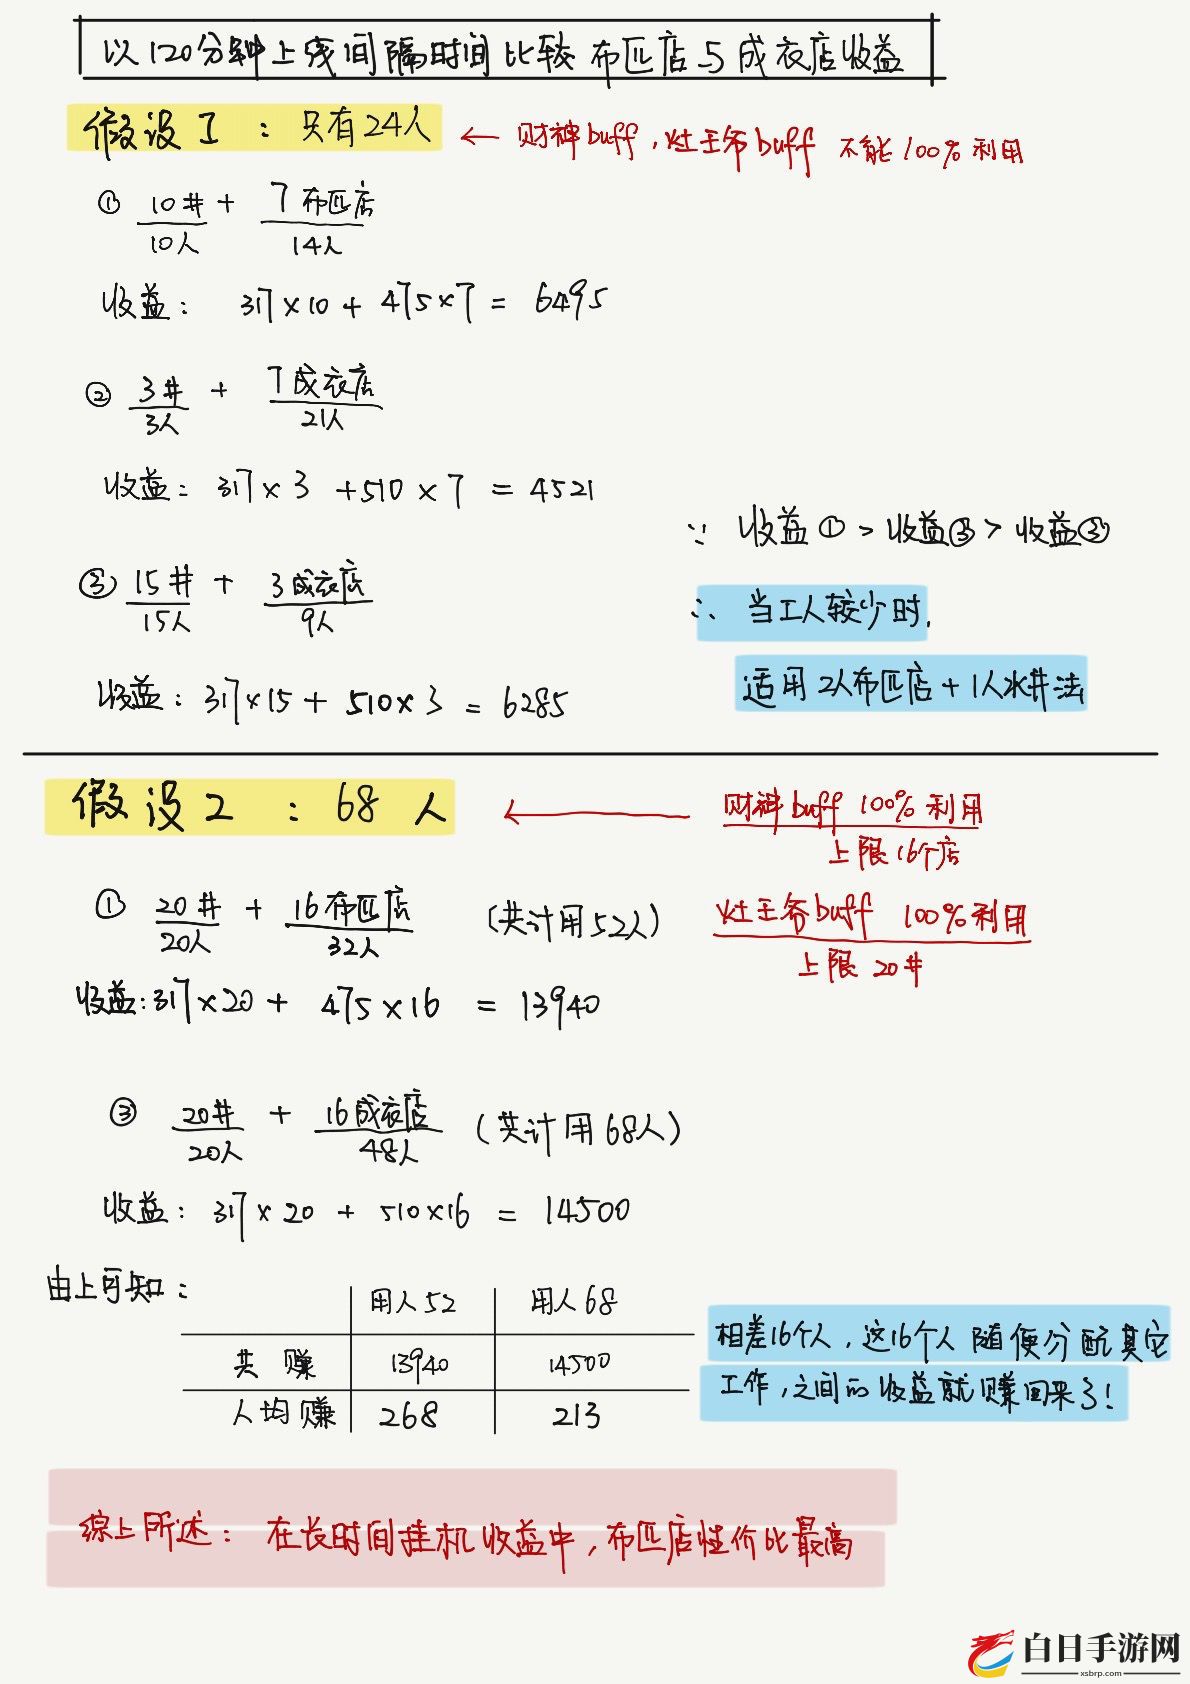 以120分钟上线间隔时间比较布匹店与成衣店收益
假设1：只有24人 ← 财神buff，灶王爷buff 不能100%利用
① 10井/10人 + 7布匹店/14人
收益： 317×10 + 475×7 = 6495
② 3井/3人 + 7成衣店/21人
收益： 317×3 +510×7 = 4521
③ 15井/15人 + 3成衣店/9人
收益：317×15 + 510×3 = 6285
∵ 收益①>收益③>收益②
∴ 当工人较少时，
适用2人布匹店+1人水井法
假设2：68人 ← 财神buff 100%利用
上限16个店
灶王爷buff 100%利用
上限20井
① 20井/20人 + 16布匹店/32人 (共计用52人)
收益:317×20 + 475×16 = 13940
② 20井/20人 + 16成衣店/48人 (共计用68人)
收益：317×20 + 510×16 = 14500
由上可知：
用人52 用人68
共赚 13940 14500
人均赚 268 213
相差16个人，这16个人随便分配其它
工作，之间的收益就赚回来了!
综上所述：在长时间挂机收益中，布匹店性价比最高
白日手游网
xsbrp.com